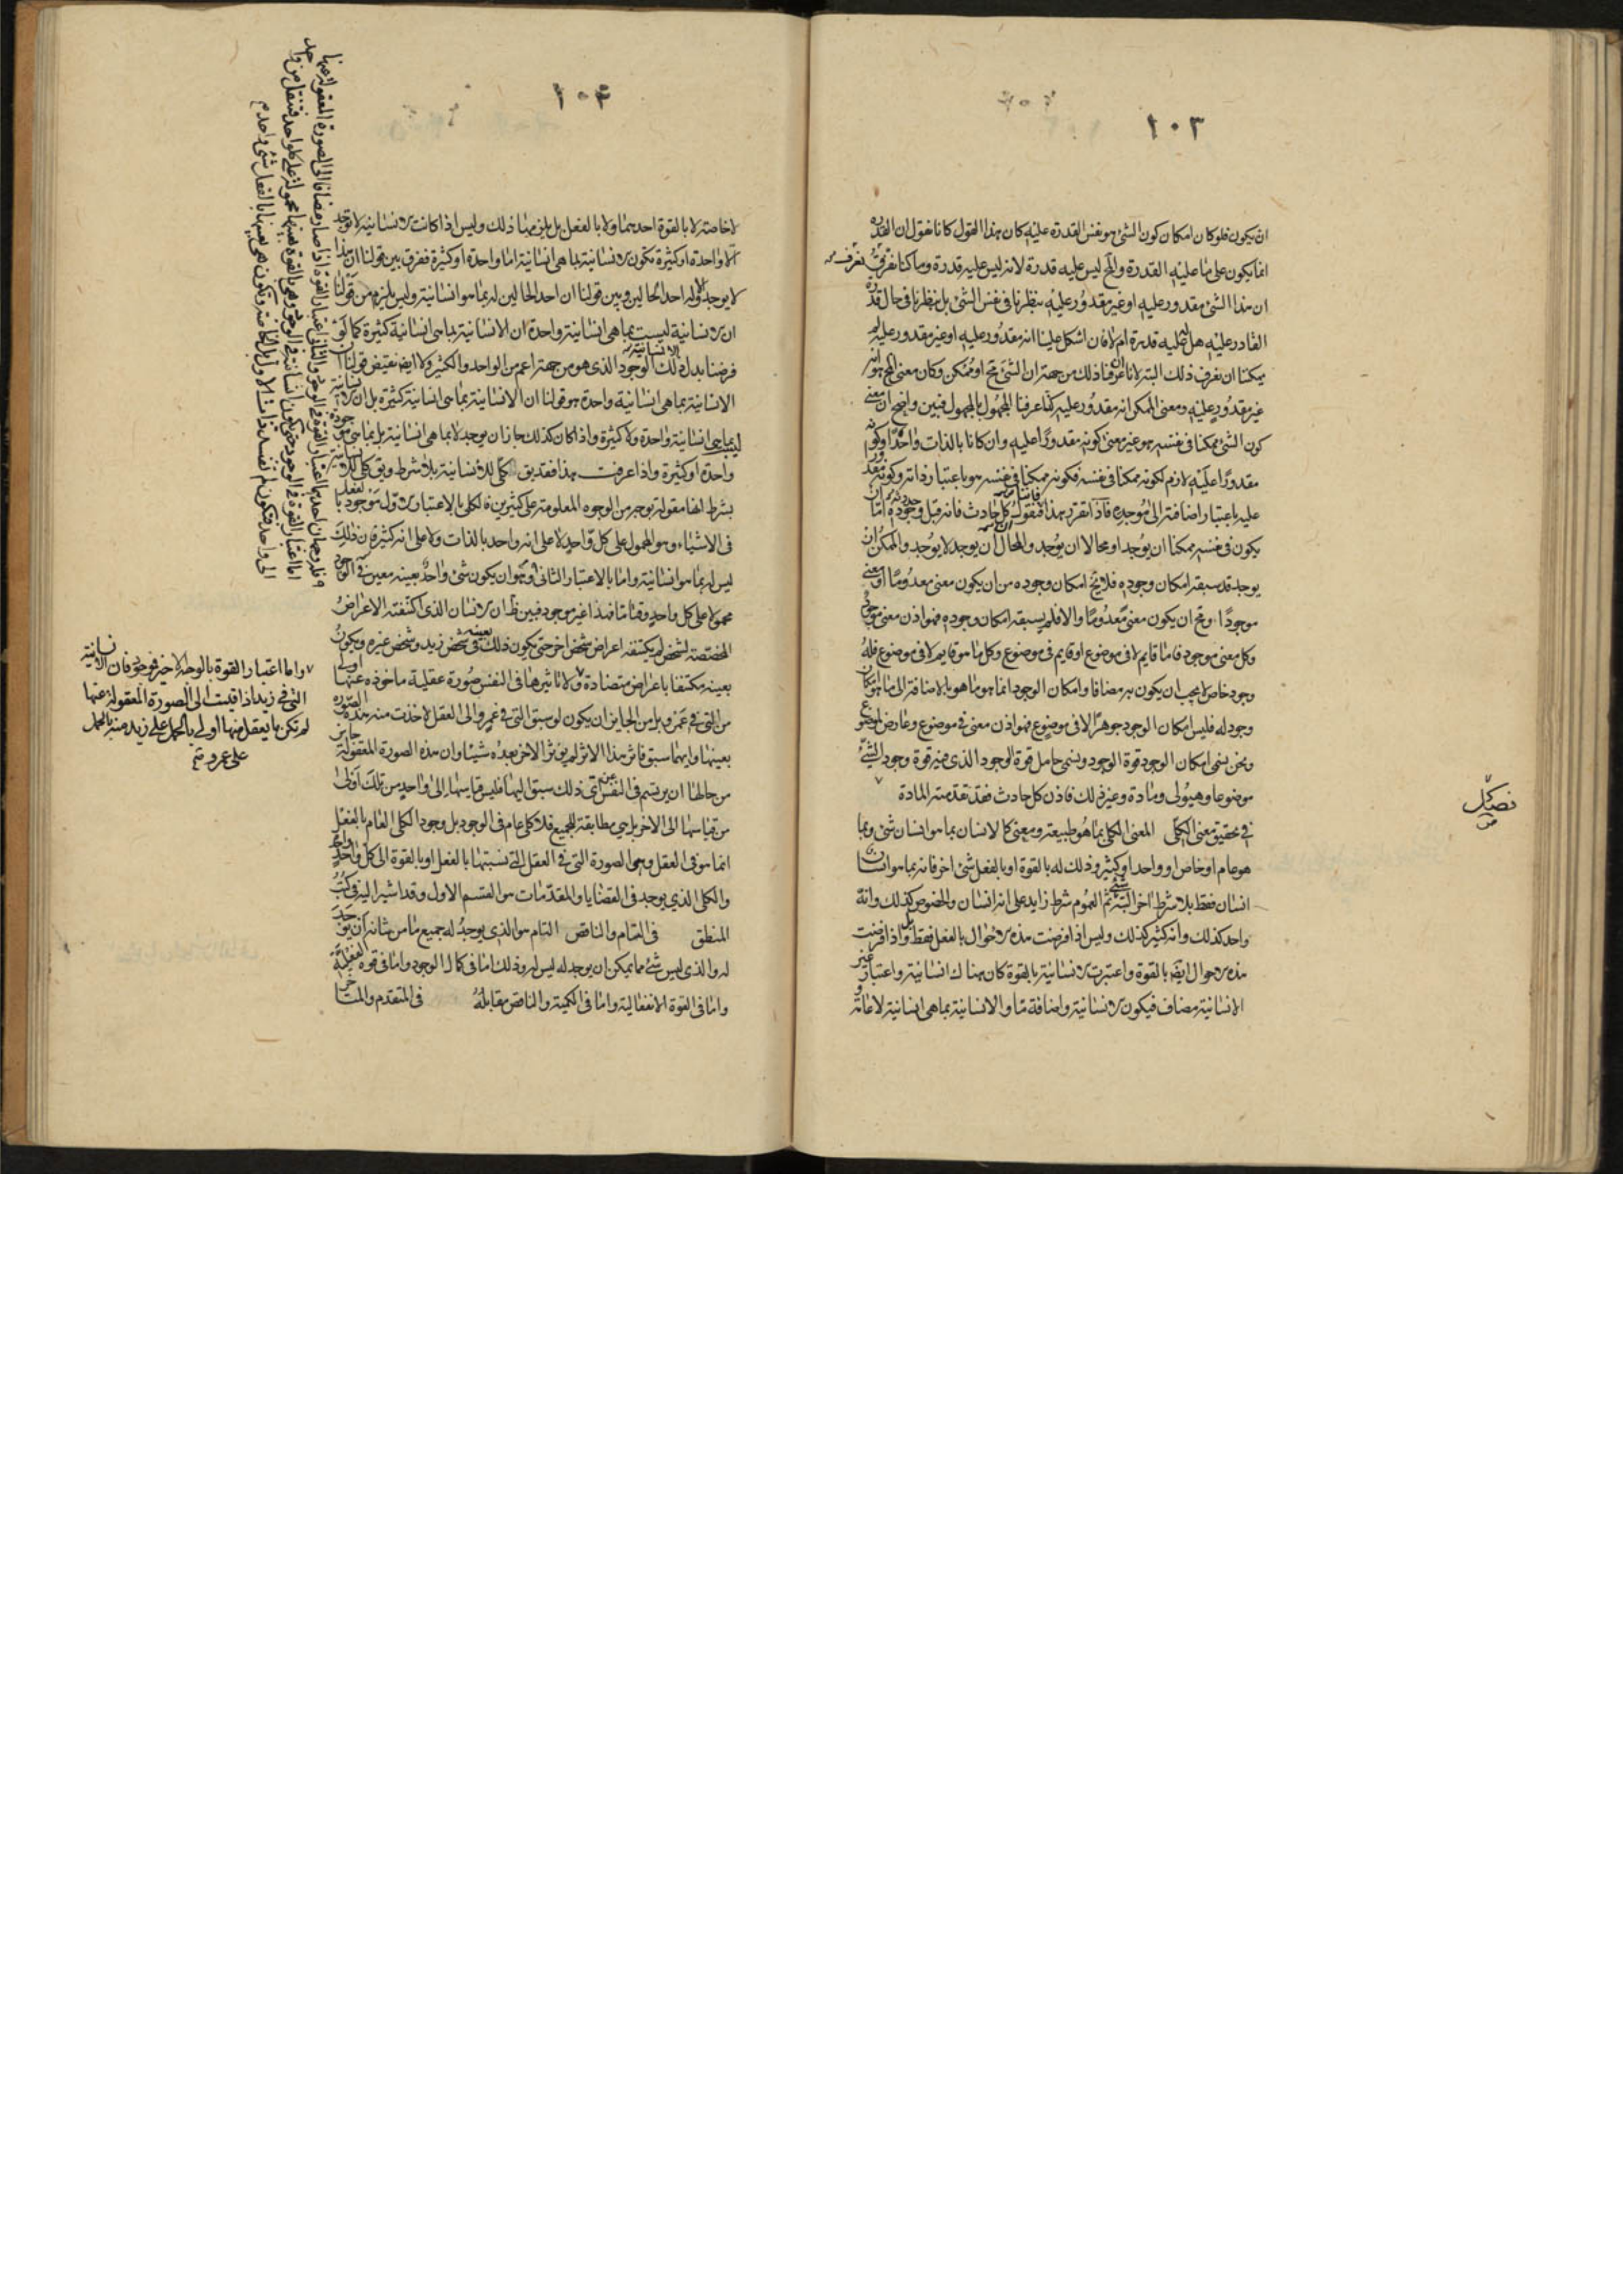 ١٠٣
ان يكون فلو كان امكان كون الشئ هو نفس القدرة عليه كان هذا القول كانا نقول ان القدرة
انما يكون على ما عليه القدرة والمح ليس عليه قدرة لانه ليس عليه قدرة وما كنا نعرف
ان هذا الشئ مقدور عليه او غير مقدور عليه بنظرنا فى نفس الشئ بل بنظرنا فى حال قدرة
القادر عليه هل له عليه قدرة ام لا فان اشكل علينا انه مقدور عليه او غير مقدور عليه لم
يمكننا ان نعرف ذلك البتة لانا ان عرفنا ذلك من جهة ان الشئ مح او ممكن وكان معنى المح هو انه
غير مقدور عليه ومعنى الممكن انه مقدور عليه كنا عرفنا المجهول بالمجهول فبين واضح ان معنى
كون الشئ ممكنا فى نفسه هو غير معنى كونه مقدورا عليه وان كانا بالذات واحدا وكونه
مقدورا عليه لازم لكونه ممكنا فى نفسه فكونه ممكنا فى نفسه هو باعتبار ذاته وكونه مقدورا
عليه باعتبار اضافته الى موجده فاذا تقرر هذا فنقول كل حادث فانه قبل وجوده اما ان
يكون فى نفسه ممكنا ان يوجد او محالا ان يوجد والمحال ان يوجد لا يوجد والممكن ان
يوجد قد سبقه امكان وجوده فلا يخ امكان وجوده من ان يكون معنى معدوما او معنى
موجودا ومح ان يكون معنى معدوما والا فلم يسبقه امكان وجوده فهو اذن معنى موجود
وكل معنى موجود فاما قايم لا فى موضوع او قايم فى موضوع وكل ما هو قايم لا فى موضوع فله
وجود خاص لا يجب ان يكون به مضافا وامكان الوجود انما هو ما هو بالاضافة الى ما هو امكان
وجود له فليس امكان الوجود جوهرا لا فى موضوع فهو اذن معنى فى موضوع وعارض لموضوع
ونحن نسمى امكان الوجود قوة الوجود ونسمى حامل قوة الوجود الذى فيه قوة وجود الشئ
موضوعا وهيولى ومادة وغير ذلك فاذن كل حادث فقد تقدمته المادة
فصل
فى تحقيق معنى الكلى المعنى الكلى بما هو طبيعة ومعنى كالانسان بما هو انسان شئ وبما
هو عام او خاص او واحد او كثير وذلك له بالقوة او بالفعل شئ اخر فانه بما هو انسان
انسان فقط بلا شرط اخر البتة ثم العموم شرط زايد على انه انسان والخصوص كذلك وانه
واحد كذلك وانه كثير كذلك وليس اذا فرضت هذه الاحوال بالفعل فقط بل واذا فرضت
هذه الاحوال ايضا بالقوة واعتبرت الانسانية بالقوة كان هناك انسانية واعتبار غير
الانسانية مضاف فيكون الانسانية واضافة ما والانسانية بما هى انسانية لا عامة
١٠٤
لا خاصة لا بالقوة احدهما ولا بالفعل بل يلزمها ذلك وليس اذا كانت الانسانية لا توجد
الا واحدة او كثيرة تكون الانسانية بما هى انسانية اما واحدة او كثيرة ففرق بين قولنا ان هذا
لا يوجد الا وله احد الحالين وبين قولنا ان احد الحالين له بما هو انسانية وليس يلزم من قولنا
ان الانسانية ليست بما هى انسانية واحدة ان الانسانية بما هى انسانية كثيرة كما لو
فرضنا بدل ذلك الوجود الذى هو من جهة اعم من الواحد والكثير ولا ايضا نقيض قولنا ان
الانسانية بما هى انسانية واحدة هو قولنا ان الانسانية بما هى انسانية كثيرة بل ان الانسانية
ليست بما هى انسانية واحدة ولا كثيرة واذا كان كذلك جاز ان يوجد لا بما هى انسانية بل بما هى موجودة
واحدة او كثيرة واذا عرفت هذا فقد يق كلى للانسانية بلا شرط ويق كلى للانسانية
بشرط انها مقولة بوجه من الوجوه المعلومة على كثيرين فالكلى بالاعتبار الاول موجود بالفعل
فى الاشياء وهو المحمول على كل واحد لا على انه واحد بالذات ولا على انه كثير فان ذلك
ليس له بما هو انسانية واما بالاعتبار الثانى فهو ان يكون شئ واحد بعينه معين فى الوجود
محمولا على كل واحد وقتا ما فهذا غير موجود فبين ظ ان الانسان الذى اكتنفته الاعراض
المختصة لشخص لم يكتنفه اعراض شخص اخر حتى يكون ذلك بعينه فى شخص زيد وشخص غيره ويكون
بعينه مكتنفا باعراض متضادة ولا تاثيرها فى النفس صورة عقلية ماخوذة عنها
من التى فى عمرو بل من الجايز ان يكون لو سبق التى فى عمرو الى العقل لاخذت منه هذه الصورة
بعينها وايهما سبق فاثر هذا الاثر لم يؤثر الاخر بعده شيئا وان هذه الصورة المعقولة جايز
من حالها ان يرتسم فى النفس عن اى ذلك سبق اليها فليس قياسها الى واحد من تلك اولى
من قياسها الى الاخر بل هى مطابقة للجميع فلا كلى عام فى الوجود بل وجود الكلى العام بالفعل
انما هو فى العقل وهى الصورة التى فى العقل التى نسبتها بالفعل او بالقوة الى كل واحد واحد
والكلى الذى يوجد فى القضايا والمقدمات هو القسم الاول وقد اشير اليه فى كتب
المنطق فى التام والناقص التام هو الذى يوجد له جميع ما من شانه ان يوجد
له والذى ليس شئ مما يمكن ان يوجد له ليس له وذلك اما فى كمال الوجود واما فى قوة الفعلية
واما فى القوة الانفعالية واما فى الكمية والناقص مقابله فى المتقدم والمتاخر
واما اعتبار القوة بالوجه الاخير فوجود فان الانسانية
التى فى زيد اذا قيست الى الصورة المعقولة عنها
لم تكن ما يعقل منها اولى بالحمل على زيد منه بالحمل
على عمرو